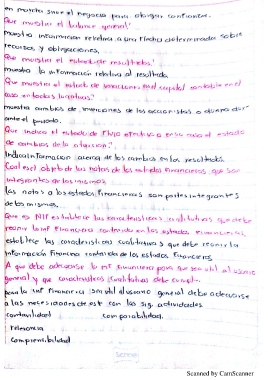 en marcha sobre el negocio para otorgar confianza.
Que muestra el balance general?
muestra informacion relativa a una fecha determinada sobre
recursos y obligaciones.
Que muestra el estado de resultados?
muestra la informacion relativa al resultado
Que muestra el estado de variaciones en el capital contable en el
caso entidades lucrativas?
muestra cambios de inversiones de los accionistas o dueños dur
ante el periodo.
Que indica el estado de Flujo efectivo o en su caso el estado
de cambios de la situacion?
Indica informacion acerca de los cambios en los resultados.
Cual es el objeto de las notas de los estados financieros que son
integrantes de los mismos
las notas a los estados financieros son partes integrantes
de los mismos.
Que es NIF establece las caracteristicas cualitativas que debe
reunir la inf financiera contenida en los estados financieros
establece las caracteristicas cualitativas que debe reunir la
informacion financiera contenida de los estados financieros
A que debe adecuarse la inf financiera para que sea util al usuario
general y que caracteristicas cualitativas debe cumplir
para la inf financiera sea util al usuario general debe adecuarse
a las necesidades de este con las sig. actividades
contabilidad comparabilidad.
relevancia
comprensibilidad
Scribe
Scanned by CamScanner